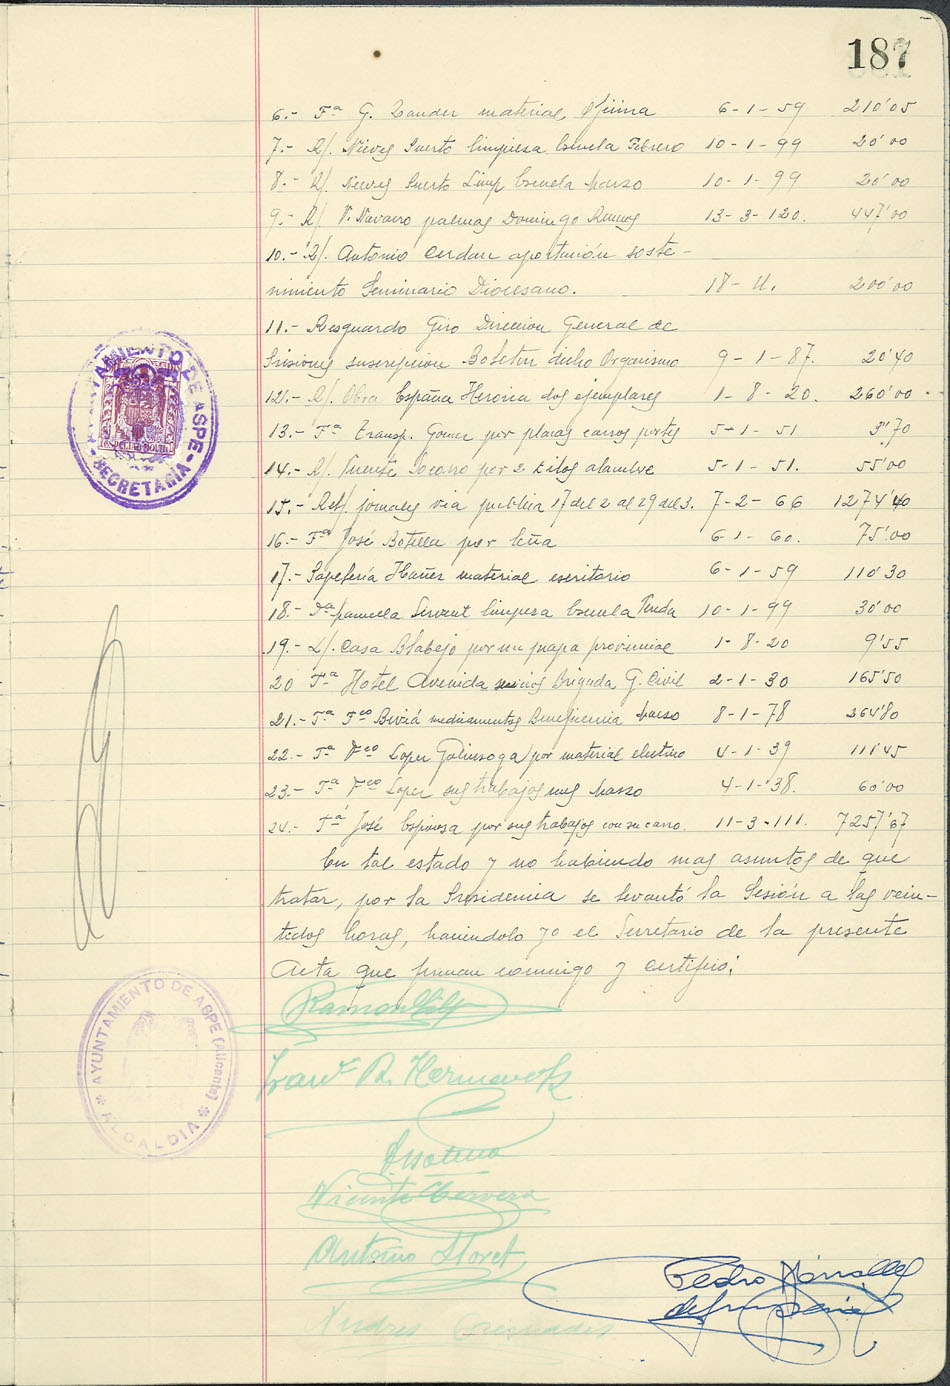 187
6.- Fª G. Zander material Ofima 6-1-59 210'05
7.- R/. Nieves Puerto limpieza Escuela Febrero 10-1-99 20'00
8.- R/. Nieves Puerto Limp Escuela Marzo 10-1-99 20'00
9.- R/ V. Navarro palmas Domingo Ramos 13-3-120. 447'00
10.- R/. Antonio Cerdan aportación soste-
nimiento Seminario Diocesano. 18-U. 200'00
11.- Resguardo Giro Direccion General de
Prisiones suscripcion Boletin dicho Organismo 9-1-87. 20'40
12.- R/. Obra España Heroica dos ejemplares 1-8-20. 260'00
13.- Fª Transp. Gomer por placas carros portes 5-1-51 3'70
14.- R/. Puente Socorro por 2 kilos alambre 5-1-51. 55'00
15.- Rel/. jornales via publica 17 del 2 al 29 del 3. 7-2-66 1274'40
16.- Fª José Botella por leña 6-1-60. 75'00
17.- Papelería Ibañez material escritorio 6-1-59 110'30
18.- Dª Manuela limpieza Escuela Tenda 10-1-99 30'00
19.- L/. Casa por un mapa provincial 1-8-20 9'55
20 Fª Hotel Avenida servicios Brigada G. Civil 2-1-30 165'50
21.- Fª Fco Beviá medicamentos Beneficencia Marzo 8-1-78 264'80
22.- Fª Fco Lopez Galiensoga por material electrico 4-1-39 111'45
23.- Fª Fco Lopez sus trabajos mes Marzo 4-1-38. 60'00
24.- Fª José Espinosa por sus trabajos con su carro. 11-3-111. 7257'67
En tal estado y no habiendo mas asuntos de que
tratar, por la Presidencia se levantó la Sesión a las vein-
tidos horas, haciendolo yo el Secretario de la presente
Acta que firman conmigo y certifico:
AYUNTAMIENTO DE ASPE
SECRETARIA
AYUNTAMIENTO DE ASPE (Alicante)
ALCALDIA
Ramon
R. Hernandez
Vicente Cervera
Antonio Lloret
Andres
Pedro